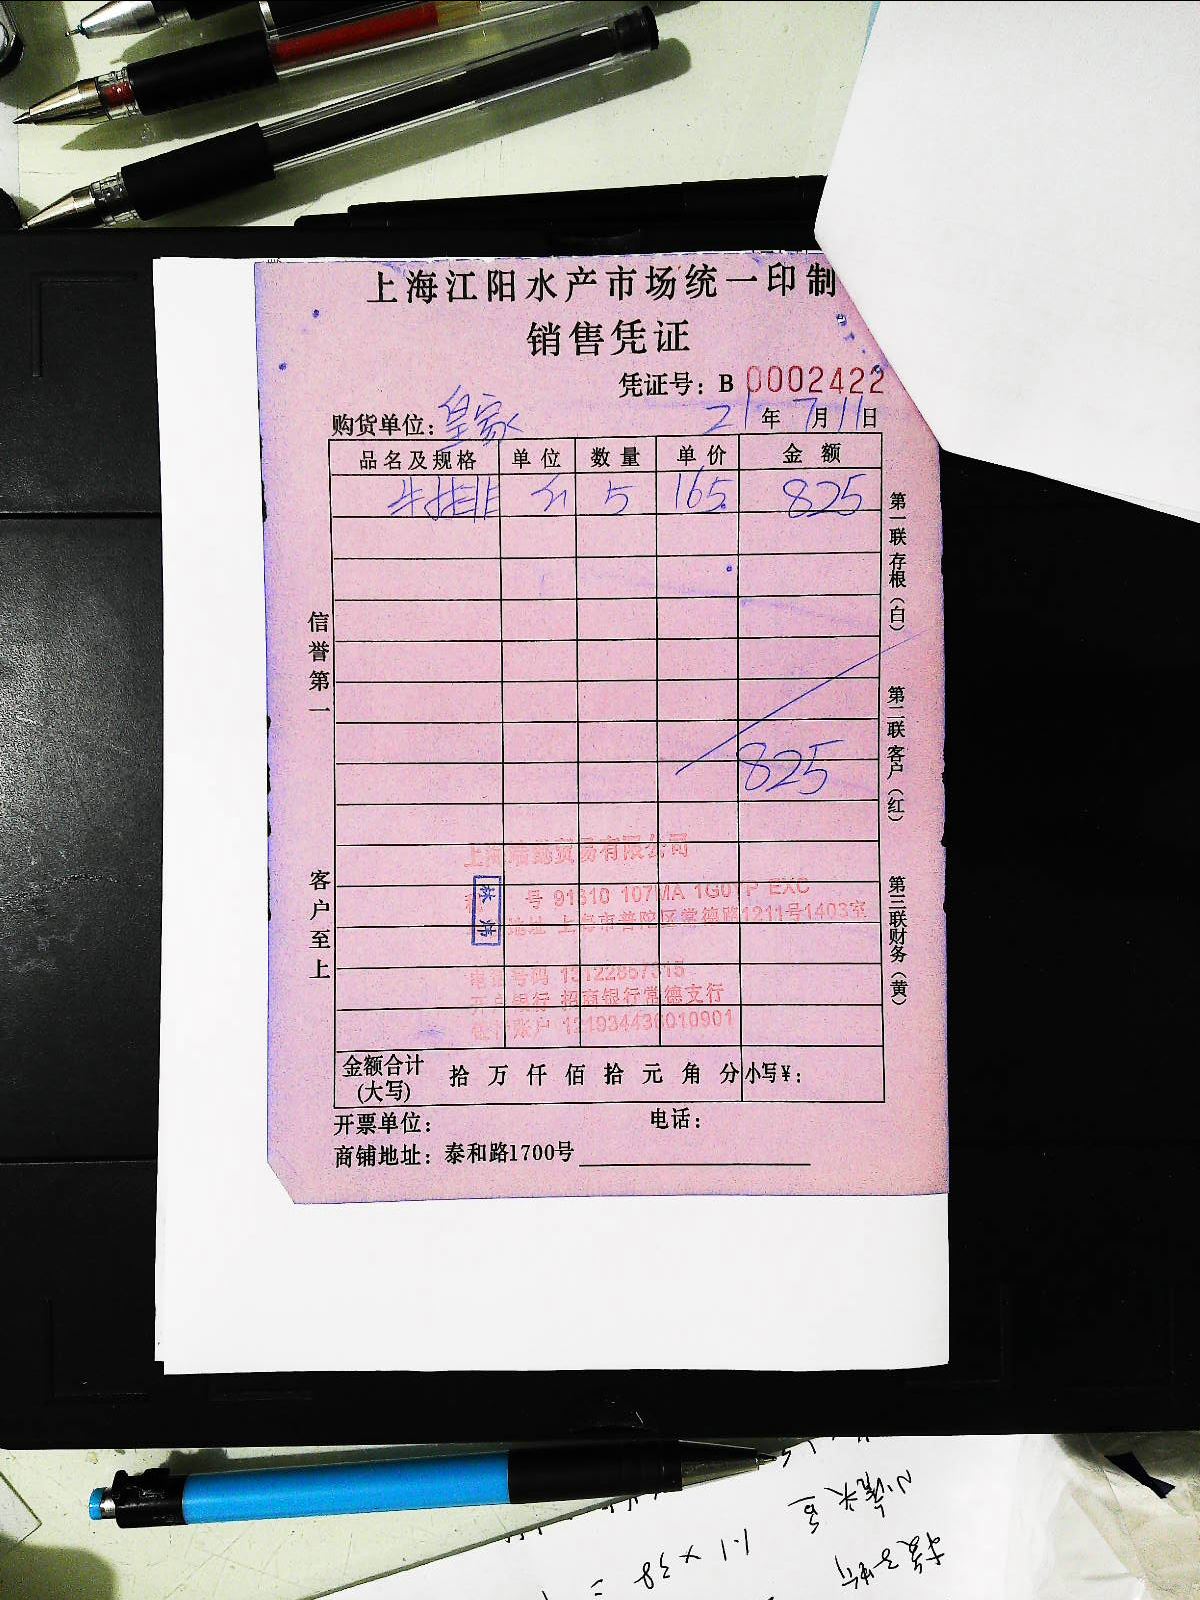 上海江阳水产市场统一印制
销售凭证
凭证号：B 0002422
购货单位：皇家 21年7月11日
品名及规格 单位 数量 单价 金额
牛排 5 165. 825
825
信誉第一
客户至上
第一联存根（白）
第二联客户（红）
第三联财务（黄）
上海 贸易有限公司
号 91310 107MA 1G0 P EXC
地址 上海市普陀区常德路1211号1403室
电话号码 15122857315
开户银行 招商银行常德支行
账户 121934436010901
金额合计(大写) 拾 万 仟 佰 拾 元 角 分 小写¥：
开票单位： 电话：
商铺地址：泰和路1700号
1.1 x 38 =